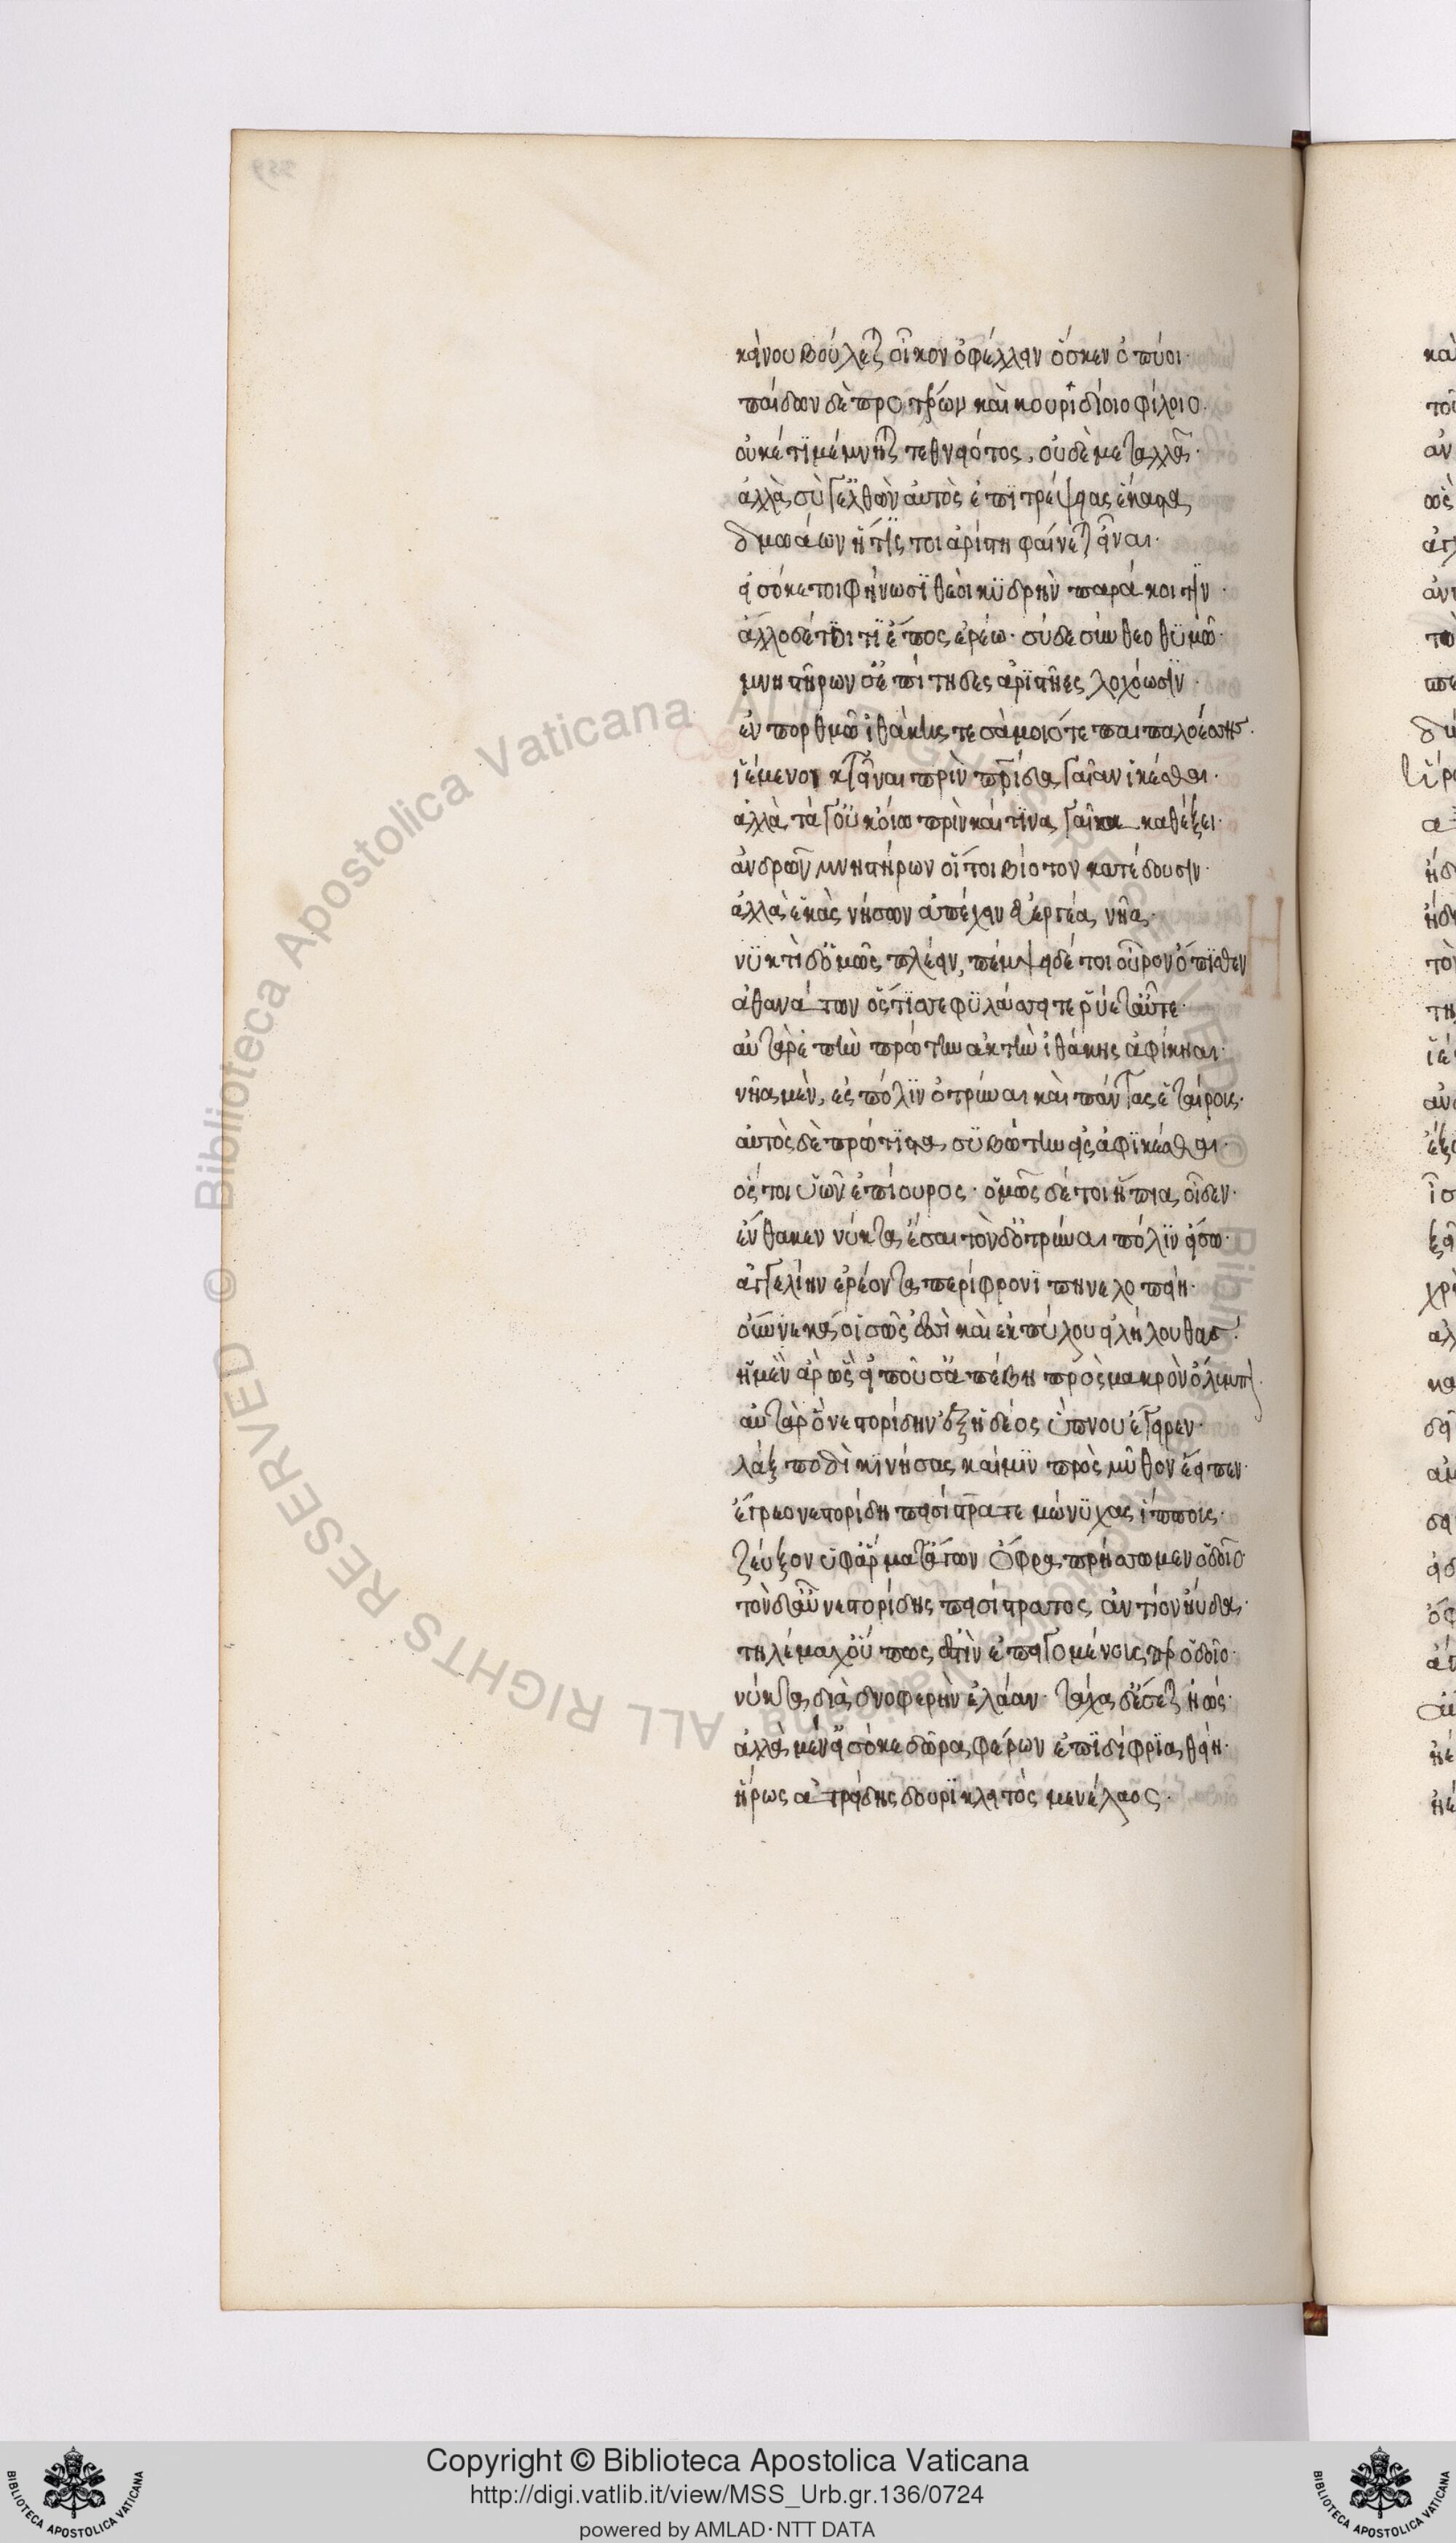 κείνου βούλεται οἶκον ὀφέλλειν ὅς κεν ὀπύοι·
παίδων δὲ προτέρων καὶ κουριδίοιο φίλοιο·
οὐκέτι μέμνηται τεθνειότος, οὐδὲ μεταλλᾶ·
ἀλλὰ σύ γ' ἐλθὼν αὐτὸς ἐπιτρέψειας ἕκαστα
δμωάων ἥ τίς τοι ἀρίστη φαίνεται εἶναι·
εἰσόκε τοι φήνωσι θεοὶ κυδρὴν παράκοιτιν·
ἄλλο δέ τοί τι ἔπος ἐρέω· σὺ δὲ σύνθεο θυμῶ·
μνηστήρων σ' ἐπιτηδὲς ἀριστῆες λοχόωσιν·
ἐν πορθμῶ ἰθάκης τε σάμοιό τε παιπαλοέσσης·
ἱέμενοι κτεῖναι πρὶν πατρίδα γαῖαν ἱκέσθαι·
ἀλλὰ τά γ' οὐκ ὀίω πρὶν καί τινα γαῖα καθέξει·
ἀνδρῶν μνηστήρων οἵ τοι βίοτον κατέδουσιν·
ἀλλὰ ἑκὰς νήσων ἀπέχειν εὐεργέα νῆα·
νυκτὶ δ' ὁμῶς πλέειν, πέμψει δέ τοι οὖρον ὄπισθεν
ἀθανάτων ὅς τίς σε φυλάσσει τε ῥύεταί τε·
αὐτὰρ ἐπὴν πρώτην ἀκτὴν ἰθάκης ἀφίκηαι·
νῆα μὲν, ἐς πόλιν ὀτρῦναι καὶ πάντας ἑταίρους·
αὐτὸς δὲ πρώτιστα συβώτην εἰς ἀφικέσθαι·
ὅς τοι ὑῶν ἐπίουρος· ὁμῶς δέ τοι ἤπια οἶδεν·
ἔνθα κεν νύκτα ἀέσαι τὸν δ' ὀτρῦναι πόλιν εἴσω·
ἀγγελίην ἐρέοντα περίφρονι πηνελοπείη·
οὕνεκά οἱ σῶς ἐσσὶ καὶ ἐκ πύλου εἰλήλουθας·
ἡ μὲν ἄρ ὣς εἰποῦσ' ἀπέβη πρὸς μακρὸν ὄλυμπον·
αὐτὰρ ὃ νεστορίδην ἐξ ἡδέος ὕπνου ἔγειρεν·
λὰξ ποδὶ κινήσας καί μιν πρὸς μῦθον ἔειπεν·
ἔγρεο νεστορίδη πεισίστρατε μώνυχας ἵππους·
ζεῦξον ὑφ' ἅρματ' ἄγων ὄφρα πρήσσωμεν ὁδοῖο·
τὸν δ' αὖ νεστορίδης πεισίστρατος ἀντίον ηὔδα·
τηλέμαχ' οὔ πως ἔστιν ἐπειγομένους περ ὁδοῖο·
νύκτα διὰ δνοφερὴν ἐλάαν· τάχα δ' ἔσεται ἠώς·
ἀλλὰ μέν' εἰσόκε δῶρα φέρων ἐπιδίφρια θείη·
ἥρως ἀτρείδης δουρικλειτὸς μενέλαος·
Copyright © Biblioteca Apostolica Vaticana
http://digi.vatlib.it/view/MSS_Urb.gr.136/0724
powered by AMLAD·NTT DATA